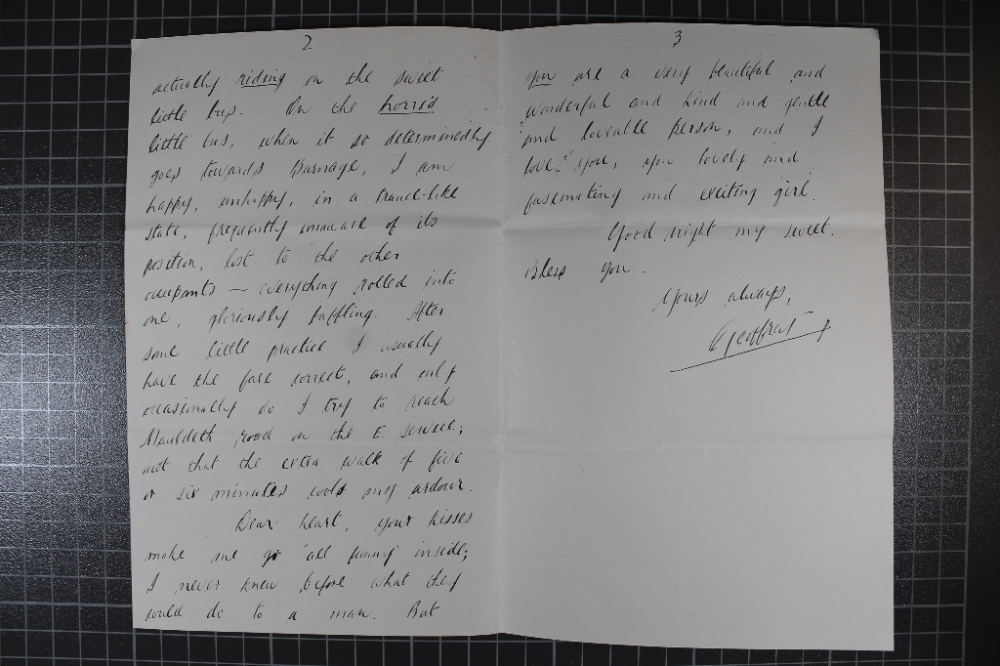 2
actually riding on the sweet
little bus. On the horrid
little bus, when it so determinedly
goes towards Burnage, I am
happy, unhappy, in a trance-like
state, frequently unaware of its
position, lost to the other
occupants — everything rolled into
one, gloriously baffling. After
some little practice I usually
have the fare correct, and only
occasionally do I try to reach
Mauldeth road on the E. service;
not that the extra walk of five
or six minutes cools my ardour.
Dear heart, your kisses
make me go "all funny" inside;
I never knew before what they
could do to a man. But
3
you are a very beautiful and
wonderful and kind and gentle
and loveable person, and I
love you, you lovely and
fascinating and exciting girl.
Good night my sweet.
Bless you.
Yours always,
Geoffrey x